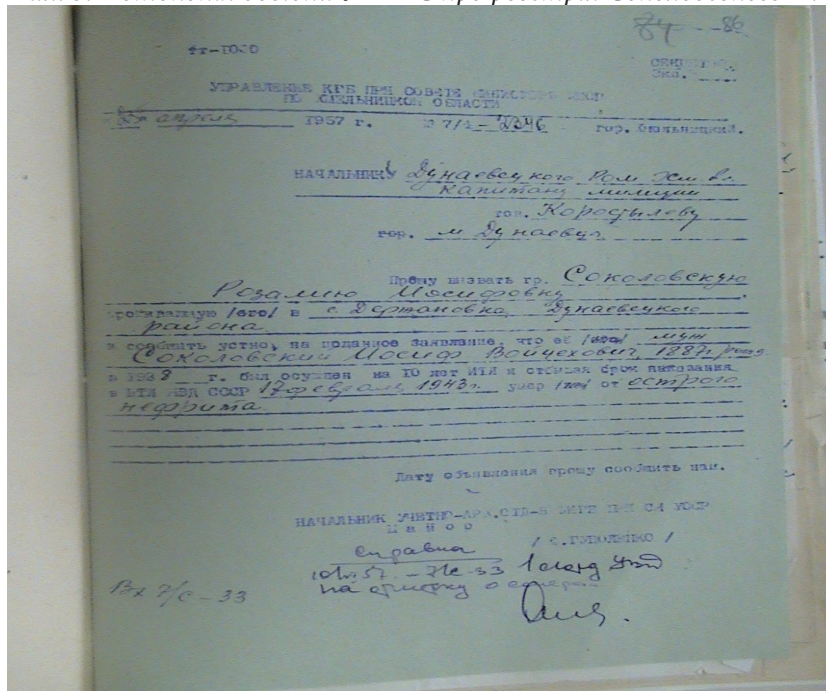 84 86
4т-1030
СЕКРЕТНО
Экз.
УПРАВЛЕНИЕ КГБ ПРИ СОВЕТЕ МИНИСТРОВ УССР
ПО ХМЕЛЬНИЦКОЙ ОБЛАСТИ
апреля 1957 г. № 7/2-2346 гор. Хмельницкий.
НАЧАЛЬНИКУ Дунаевецкого
Капитану милиции
тов. Коростылеву
гор. м Дунаевцы
Прошу вызвать гр. Соколовскую
Розалию Иосифовну,
проживающую /его/ в с. Держановка, Дунаевецкого
района
и сообщить устно, на поданное заявление, что её /его/ муж
Соколовский Иосиф Войцехович, 1887г рожд.
в 1938 г. был осужден на 10 лет ИТЛ и отбывая срок наказания
в ИТЛ МВД СССР 17 февраля 1943г. умер /ла/ от острого
нефрита.
Дату объявления прошу сообщить нам.
НАЧАЛЬНИК УЧЕТНО-АРХ.ОТД-Я УКГБ ПРИ СМ УССР
Майор
Справка
на отметку о
Вх 7/с-33